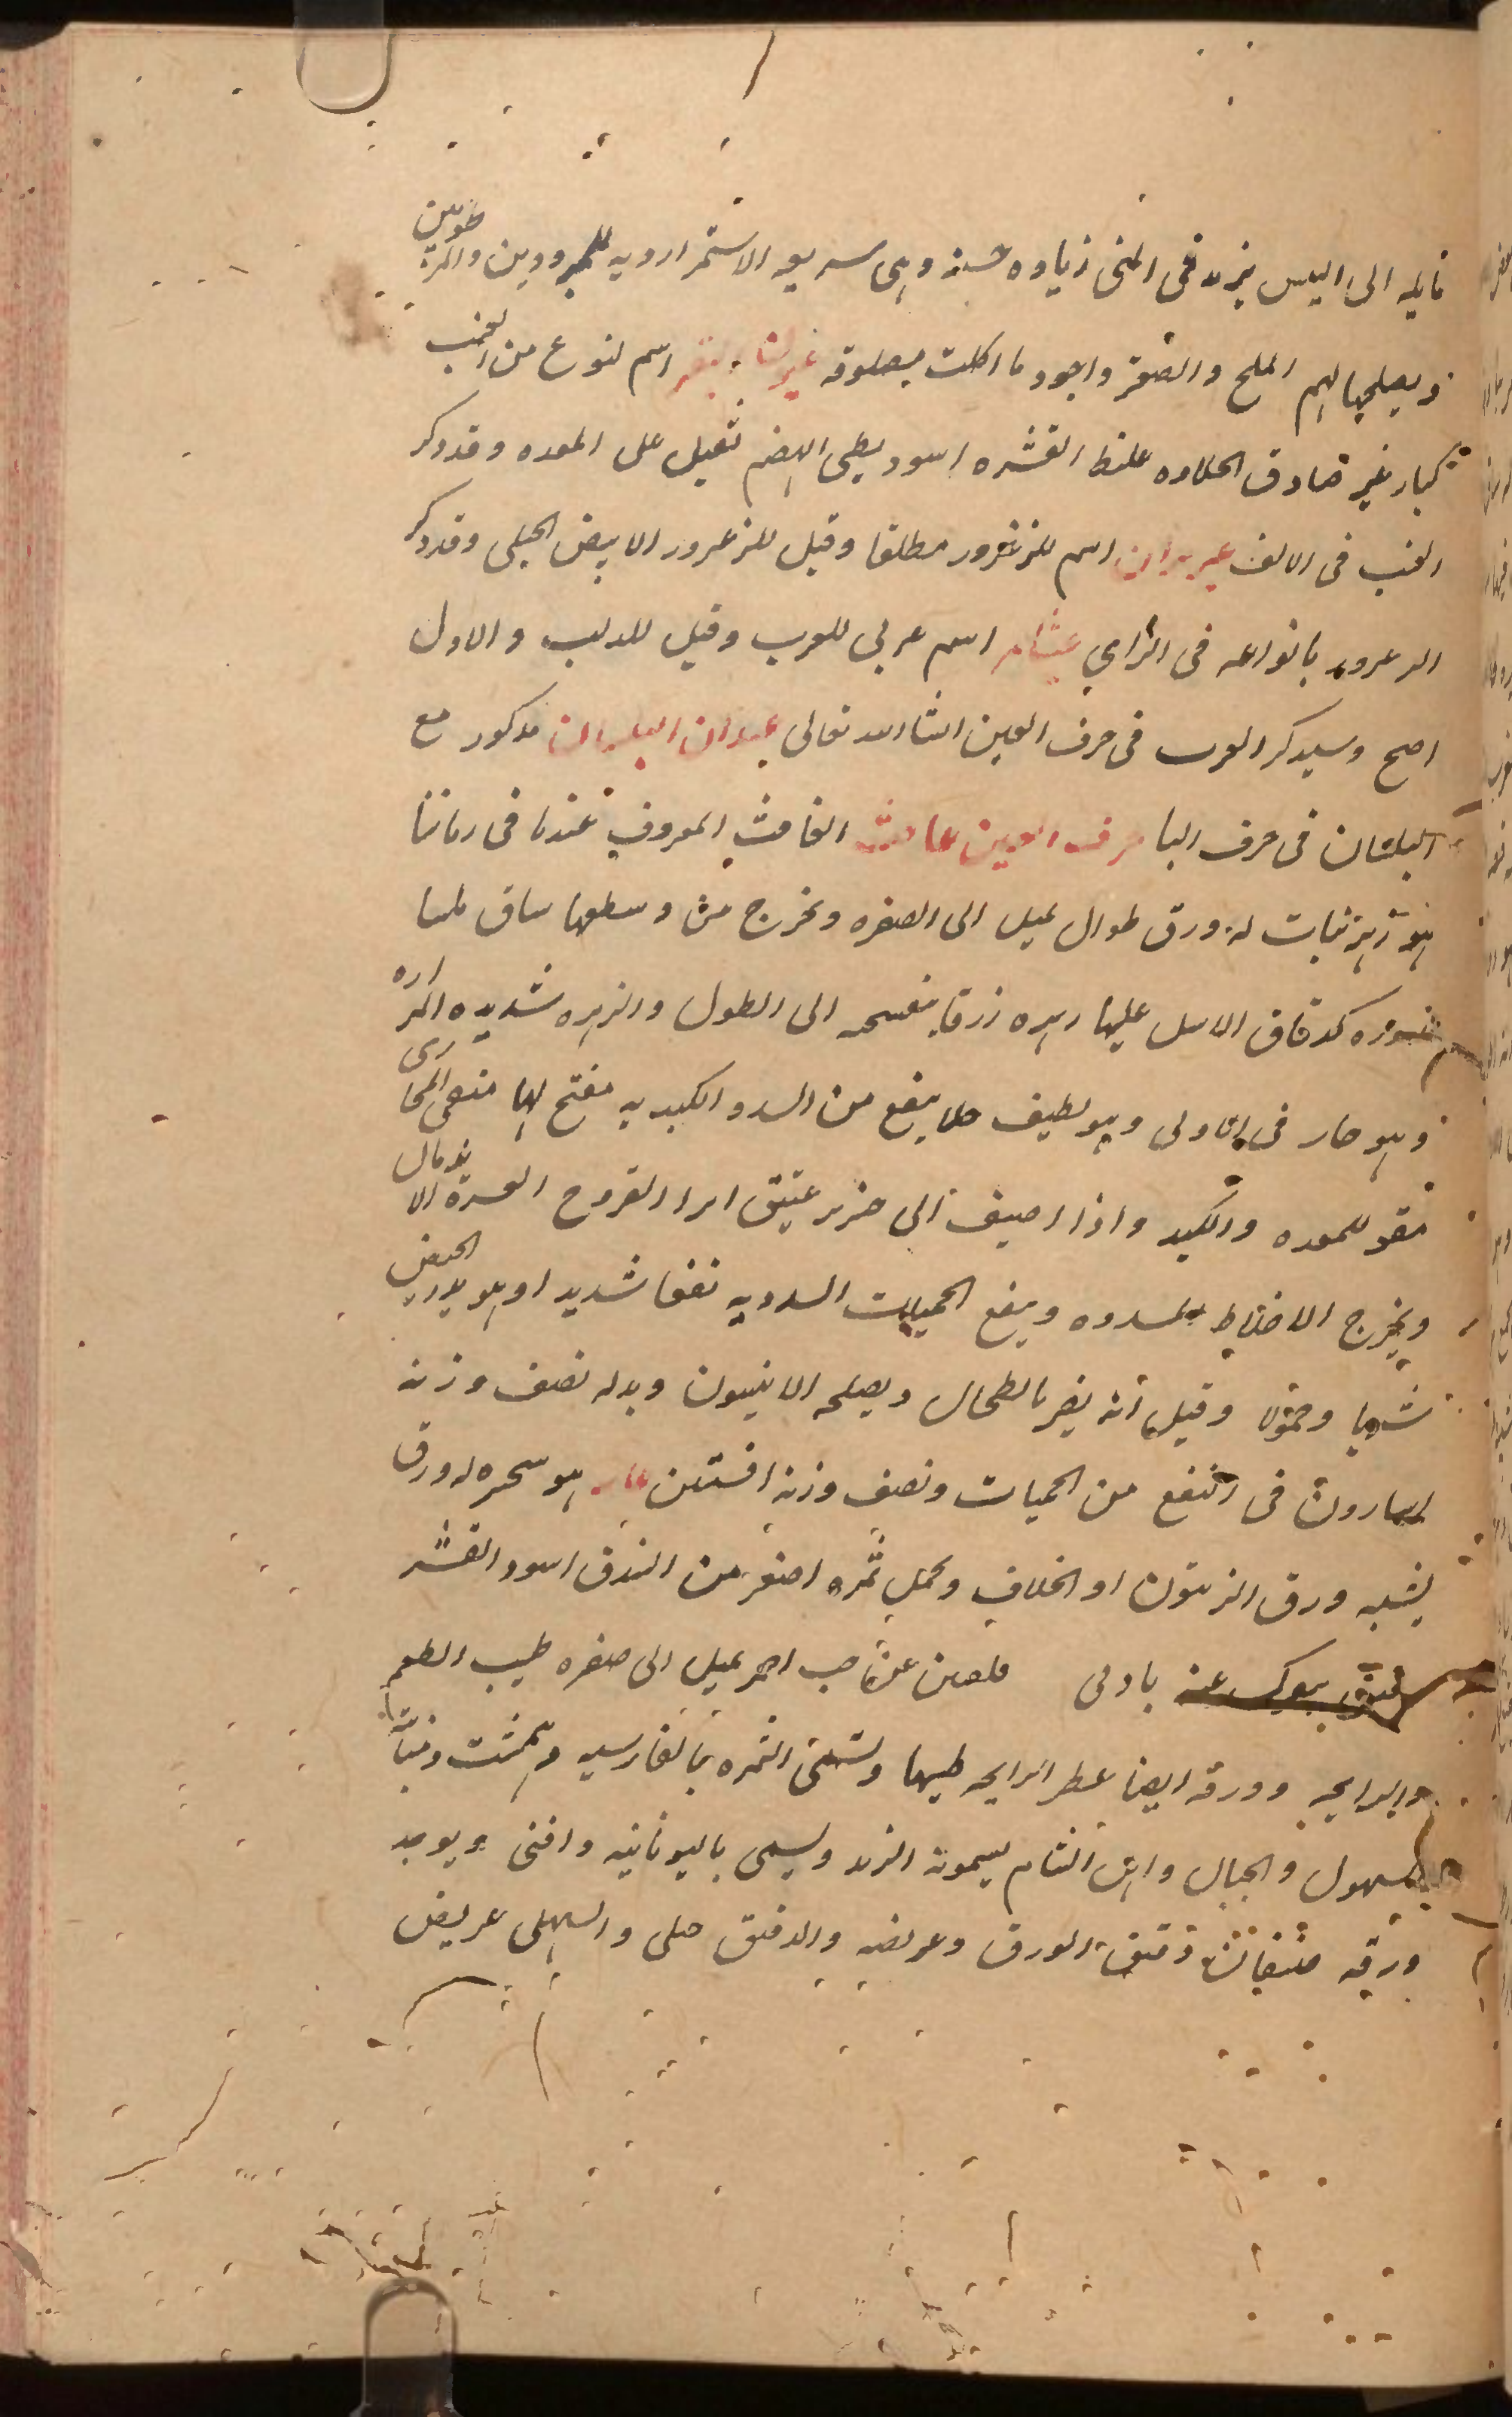 مايله الى اليبس يزيد فى المنى زياده حسنة وهى سريعه الاستمرا رديه للمبرودين والمرطوبين
ويصلحها لهم الملح والصعتر واجود ما اكلت مصلوقه عيون البقر اسم لنوع من العنب
كبار غير صادق الحلاوه غليظ القشره اسود بطى الهضم ثقيل على المعده وقد ذكر
العنب فى الالف عيزران اسم للزعرور مطلقا وقيل للزعرور الابيض الجبلى وقد ذكر
الزعرور بانواعه فى الزاى عيثام اسم عربى للغرب وقيل للدلب والاول
اصح وسيذكر الغرب فى حرف الغين انشا الله تعالى عيدان البلسان مذكور مع
البلسان فى حرف البا حرف الغين غافث الغافث المعروف عندنا فى زماننا
هو زهر نبات له ورق طوال يميل الى الصفره ويخرج من وسطها ساق
مدوره كدقاق الاسل عليها زهره زرقا بنفسجيه الى الطول والزهره شديده المراره
وهو حار فى الاولى وهو لطيف جلا ينفع من السدد الكبديه مفتح لها منقى المجارى
مقو للمعده والكبد واذا اضيف الى خنزير عتيق ابرا القروح العسرة الاندمال
ويخرج الاخلاط المسدده وينفع الحميات السدديه نفعا شديدا وهو يدر الحيض
شربا وحمولا وقيل انه يضر بالطحال ويصلحه الانيسون وبدله نصف وزنه
اسارون فى النفع من الحميات ونصف وزنه افسنتين غار هو شجره له ورق
يشبه ورق الزيتون او الخلاف ويحمل ثمره اصغر من البندق اسود القشر
بادنى عن حب احمر يميل الى صفره طيب الطعم
والرايحه وورقه ايضا عطر الرايحه طيبها وتسمى الثمره بالفارسيه دهمشت ونباته
السهول والجبال واهل الشام يسمونه الرند ويسمى باليونانيه دافنى ويوجد
ورقه صنفان دقيق الورق وعريضه والدقيق جبلى والسهلى عريض